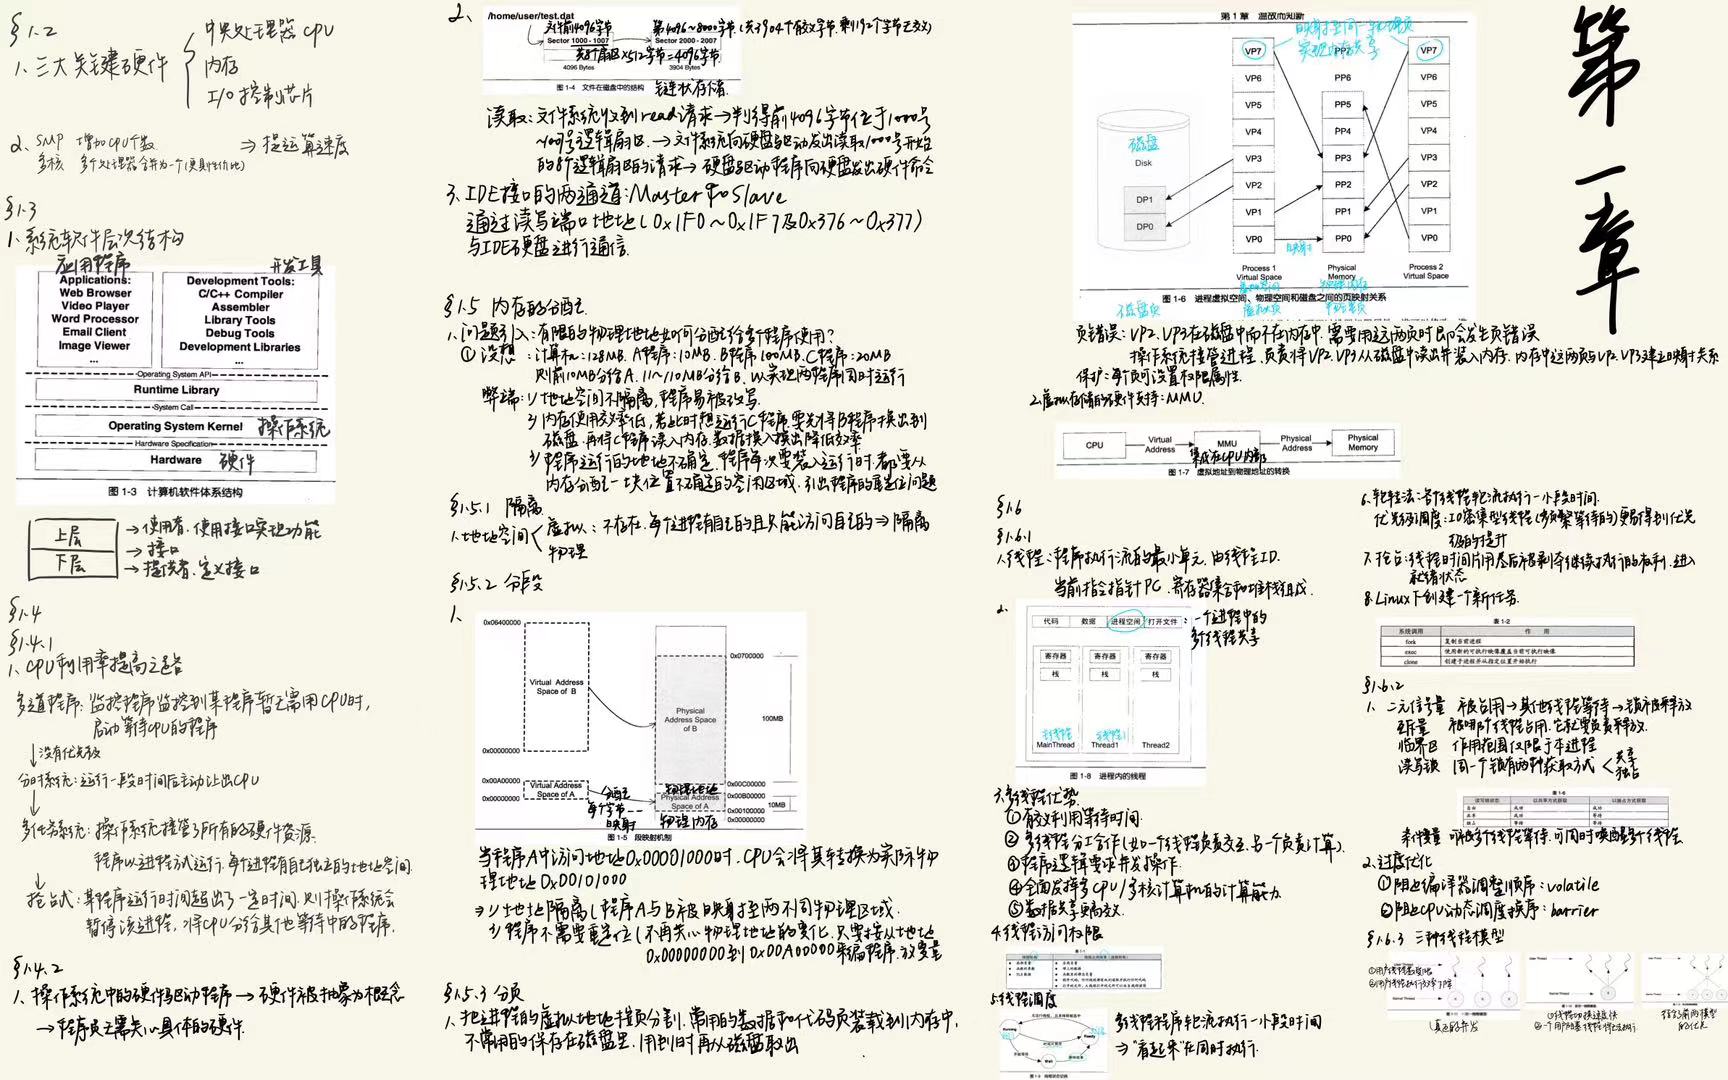 第一章
§1.2
1、三大关键硬件
中央处理器 CPU
内存
I/O控制芯片
2、SMP 增加CPU个数
多核 多个处理器合并为一个(更具性价比)
⇒ 提运算速度
§1.3
1、系统软件层次结构
应用程序
开发工具
Applications:
Web Browser
Video Player
Word Processor
Email Client
Image Viewer
...
Development Tools:
C/C++ Compiler
Assembler
Library Tools
Debug Tools
Development Libraries
...
Operating System API
Runtime Library
System Call
Operating System Kernel 操作系统
Hardware Specification
Hardware 硬件
图 1-3 计算机软件体系结构
上层 → 使用者.使用接口实现功能
→ 接口
下层 → 提供者.定义接口
§1.4
§1.4.1
1、CPU利用率提高之路
多道程序: 监控程序监控到某程序暂无需用CPU时,
启动等待CPU的程序
↓没有优先级
分时系统:运行一段时间后主动让出CPU
↓
多任务系统: 操作系统接管了所有的硬件资源.
程序以进程方式运行.每个进程有自己独立的地址空间.
↓
抢占式: 某程序运行时间超出了一定时间.则操作系统会
暂停该进程,将CPU分给其他等待中的程序.
§1.4.2
1、操作系统中的硬件驱动程序→硬件被抽象为概念
→程序员无需关心具体的硬件.
2、
/home/user/test.dat
文件前4096字节
第4096~8000字节(共3904个有效字节.剩192个字节无意义)
Sector 1000 - 1007
Sector 2000 - 2007
共8个扇区×512字节=4096字节
4096 Bytes
3904 Bytes
图 1-4 文件在磁盘中的结构
链状存储.
读取: 文件系统收到read请求→判得前4096字节位于1000号
~1007号逻辑扇区.→文件系统向硬盘驱动发出读取1000号开始
的8个逻辑扇区的请求→硬盘驱动程序向硬盘发出硬件命令
3、IDE接口的两通道:Master和Slave
通过读写端口地址(0x1F0~0x1F7及0x376~0x377)
与IDE硬盘进行通信.
§1.5 内存的分配
1.问题引入:有限的物理地址如何分配给多个程序使用?
①设想:计算机:128MB. A程序:10MB. B程序100MB. C程序:20MB
则前10MB分给A.11~110MB分给B.以实现两程序同时运行
弊端:1)地址空间不隔离,程序易被改写.
2)内存使用效率低,若此时想运行C程序.要先将B程序换出到
磁盘.再将C程序读入内存.数据换入换出降低效率
3)程序运行的地址不确定.程序每次要装入运行时.都要从
内存分配一块位置不确定的空闲区域.引出程序的重定位问题
§1.5.1 隔离.
1.地址空间
虚拟:不存在.每个进程有自己的且只能访问自己的⇒隔离
物理
§1.5.2 分段
1、
0x06400000
Virtual Address
Space of B
0x00000000
0x00A00000
Virtual Address
Space of A
0x00000000
分配
每个字节一一
映射
Physical
Address Space
of B
Physical Address
Space of A
物理内存
0x0700000
100MB
0x00C00000
0x00B00000
0x00100000
0x00000000
10MB
图 1-5 段映射机制
当程序A中访问地址0x00001000时.CPU会将其转换为实际物
理地址0x00101000
⇒1)地址隔离(程序A与B被映射至两个不同物理区域.
2)程序不需要重定位(不再关心物理地址的变化.只要按从地址
0x00000000到0x00A00000来编程序.放变量
§1.5.3 分页
1、把进程的虚拟地址按页分割.常用的数据和代码页装载到内存中.
不常用的保存在磁盘里.用到时再从磁盘取出
第 1 章 温故而知新
映射至同一物理页
实现内存共享
磁盘
Disk
DP1
DP0
VP7
VP6
VP5
VP4
VP3
VP2
VP1
VP0
PP7
PP6
PP5
PP4
PP3
PP2
PP1
PP0
VP7
VP6
VP5
VP4
VP3
VP2
VP1
VP0
映射
Process 1
Virtual Space
Physical
Memory
Process 2
Virtual Space
图 1-6 进程虚拟空间、物理空间和磁盘之间的页映射关系
磁盘页
虚拟页
物理页
页错误: VP2.VP3在磁盘中而不在内存中.需要用这两页时即会发生页错误
操作系统接管进程.负责将VP2.VP3从磁盘中读出并装入内存.内存中这两页与VP2.VP3建立映射关系
保护:每个页可设置权限属性.
2.虚拟存储的硬件支持:MMU.
CPU
Virtual
Address
MMU
集成在CPU内部
Physical
Address
Physical
Memory
图 1-7 虚拟地址到物理地址的转换
§1.6
§1.6.1
1.线程:程序执行流的最小单元.由线程ID.
当前指令指针PC.寄存器集合和堆栈组成.
2.
代码 数据 进程空间 打开文件
:一个进程中的
多个线程共享
寄存器 寄存器 寄存器
栈 栈 栈
主线程
线程1
MainThread Thread1 Thread2
图 1-8 进程内的线程
3.多线程优势.
①有效利用等待时间.
②多线程分工合作(如一个线程负责交互.另一个负责计算).
③程序逻辑要求并发操作.
④全面发挥多CPU/多核计算机的计算能力
⑤数据共享更高效.
4.线程访问权限
5.线程调度
Running
Ready
Wait
多线程程序轮流执行一小段时间
⇒"看起来"在同时执行.
6.轮转法:各个线程轮流执行一小段时间.
优先级调度:IO密集型线程(频繁等待的)更易得到优先
级的提升
7.抢占:线程时间片用尽后被剥夺继续执行的权利.进入
就绪状态
8.Linux下创建一个新任务.
表 1-2
系统调用 作 用
fork 复制当前进程
exec 使用新的可执行映像覆盖当前可执行映像
clone 创建子进程并从指定位置开始执行
§1.6.2
1、二元信号量 被占用→其他线程等待→锁被释放
互斥量 被哪个线程占用.它就要负责释放.
临界区 作用范围仅限于本进程
读写锁 同一个锁有两种获取方式
共享
独占
读写锁状态 以共享方式获取 以独占方式获取
自由 成功 成功
共享 成功 等待
独占 等待 等待
条件变量 可被多个线程等待.可同时唤醒多个线程
2.过度优化
①阻止编译器调整顺序:volatile
②阻止CPU动态调度换序:barrier
§1.6.3 三种线程模型
真正的并发